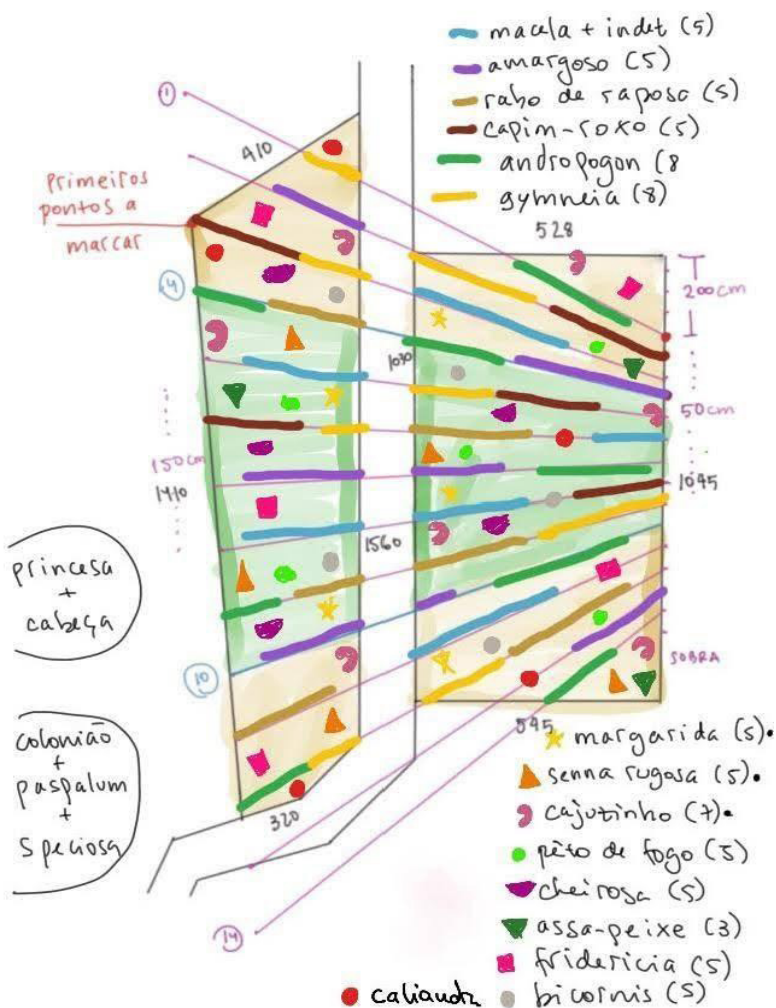 macela + indet (5)
amargoso (5)
rabo de raposa (5)
capim-roxo (5)
andropogon (8
gymneia (8)
1
410
primeiros
pontos a
marcar
528
200cm
4
1030
50cm
150cm
1410
1045
1560
princesa
+
cabeça
10
SOBRA
colonião
+
paspalum
+
speciosa
595
320
margarida (5).
senna rugosa (5).
cajuzinho (7).
pêlo de fogo (5)
cheirosa (5)
assa-peixe (3)
14
fridericia (5)
caliandra
bicornis (5)